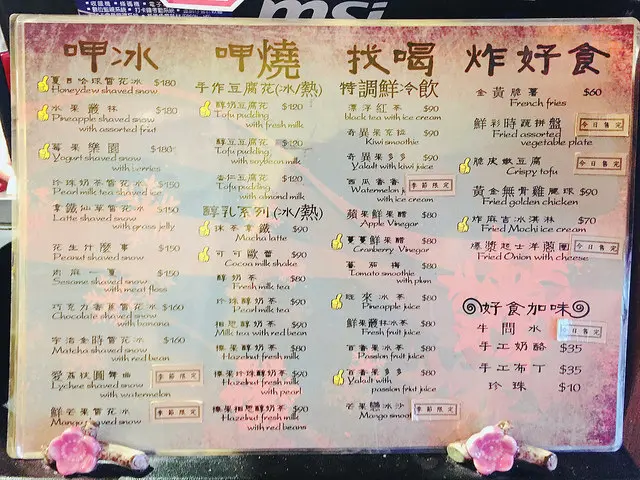 msi
呷冰
夏日哈味雪花冰 $180
Honeydew shaved snow
水果叢林 $180
Pineapple shaved snow
with assorted fruit
莓果樂園 $180
Yogurt shaved snow
with berries
珍珠奶茶雪花冰 $150
Pearl milk tea shaved ice
拿鐵仙草雪花冰 $150
Latte shaved snow
with grass jelly
花生什麼事 $150
Peanut shaved snow
肉麻一夏 $150
Sesame shaved snow
with meat floss
巧克力香蕉雪花冰 $160
Chocolate shaved snow
with banana
宇治金時雪花冰 $160
Matcha shaved snow
with red bean
愛荔枝圓舞曲 季節限定
Lychee shaved snow
with watermelon
鮮芒果雪花冰 季節限定
Mango shaved snow
呷燒
手作豆腐花(冰/熱)
醇奶豆腐花 $120
Tofu pudding
with fresh milk
醇豆豆腐花 $120
Tofu pudding
with soybean milk
杏仁豆腐花 $120
Tofu pudding
with almond milk
醇乳系列(冰/熱)
抹茶拿鐵 $90
Macha latte
可可歐蕾 $90
Cocon milk shake
醇奶茶 $80
Fresh milk tea
珍珠醇奶茶 $90
Pearl milk tea
相思醇奶茶 $90
Milk tea with red bean
榛果醇奶茶 $80
Hazelnut fresh milk
榛果珍珠醇奶茶 $90
Hazelnut fresh milk
with pearl
榛果相思醇奶茶 $90
Hazelnut fresh milk
with red beans
找喝
特調鮮冷飲
漂浮紅茶 $90
black tea with ice cream
奇異果克拉 $90
Kiwi smoothie
奇異果多多 $90
Yakult with kiwi juice
西瓜香香 季節限定
Watermelon
with ice cream
蘋果鮮果醋 $80
Apple Vinegar
蔓蔓鮮果醋 $80
Cranberry Vinegar
蕃茄梅 $80
Tomato smoothie
with plum
旺來冰茶 $80
Pineapple juice
鮮果叢林冰茶 $80
Fresh fruit juice
百香果冰茶 $80
Passion fruit juice
百香果多多 $80
Yakult with
passion friut juice
芒果戀冰沙 季節限定
Mango smoot
炸好食
金黃脆薯 $60
French fries
鮮彩時蔬拼盤 今日售完
Fried assorted
vegetable plate
脆皮嫩豆腐 今日售完
Crispy tofu
黃金無骨雞腿球 $90
Fried golden chicken
炸麻吉冰淇淋 $70
Fried Mochi ice cream
爆漿起士洋蔥圈 今日售完
Fried Onion with cheese
好食加味
牛問水 今日售完
手工奶酪 $35
手工布丁 $35
珍珠 $10